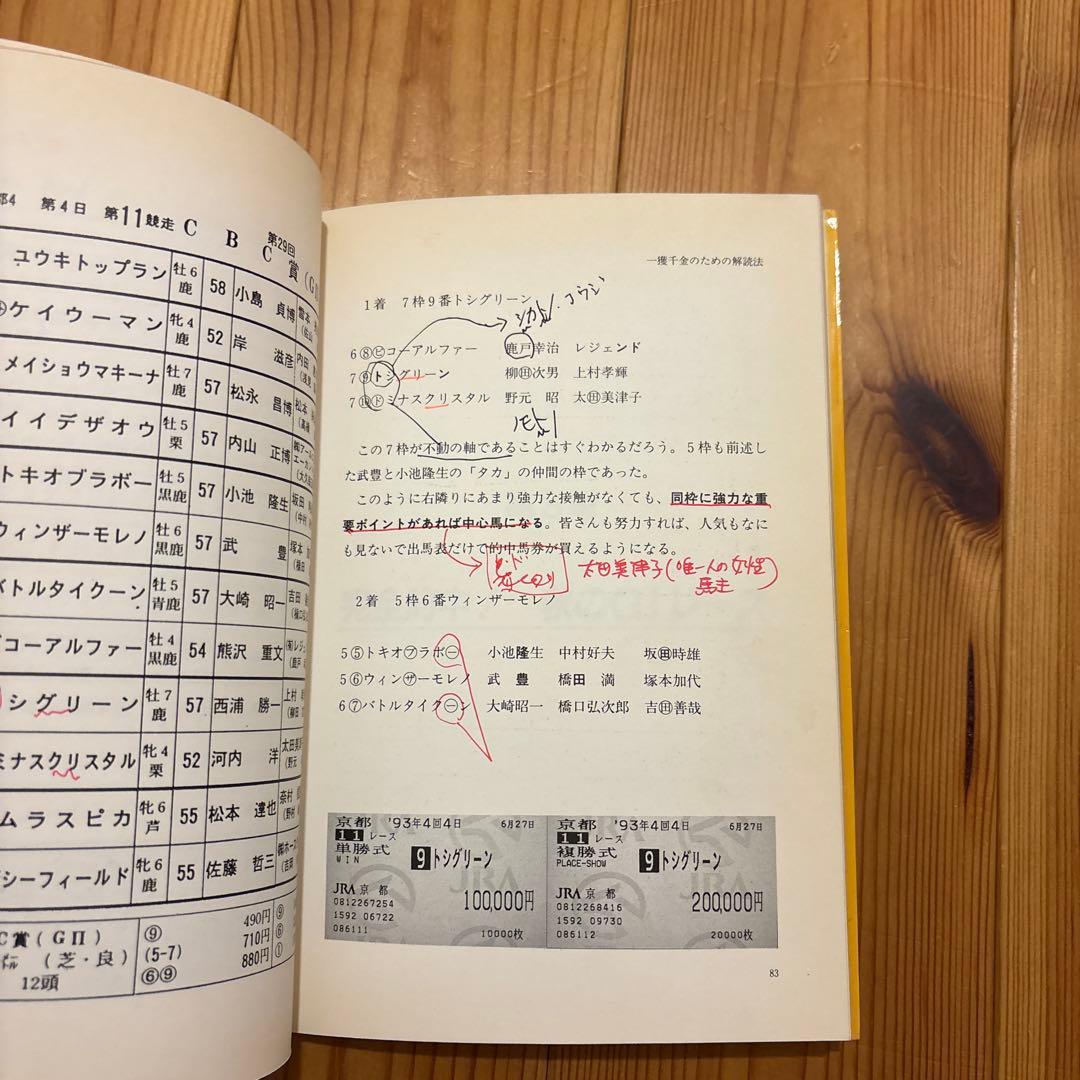 都4 第4日 第11競走 CBC賞(GII) 第29回
ユウキトップラン 牡6鹿 58 小島 貞博
ケイウーマン 牝4鹿 52 岸 滋彦 内田
メイショウマキーナ 牡7鹿 57 松永 昌博 松本
イイデザオウ 牡5栗 57 内山 正博
トキオブラボー 牡5黒鹿 57 小池 隆生 坂田
ウィンザーモレノ 牡6黒鹿 57 武 豊 塚本
バトルタイクーン 牡5青鹿 57 大崎 昭一 吉田
コーアルファー 牡4黒鹿 54 熊沢 重文 ㈲レジェ
シグリーン 牡7鹿 57 西浦 勝一 上村
ミナスクリスタル 牝4栗 52 河内 洋 太田美 (野元
ムラスピカ 牝6芦 55 松本 達也 奈村
シーフィールド 牝6鹿 55 佐藤 哲三 ㈱ホース
C賞(GII) ⑨ 490円 ⑨
(芝・良) (5-7) 710円 ⑥
12頭 ⑥⑨ 880円 ①
一獲千金のための解読法
1着 7枠9番トシグリーン
シカト.コウジ
6⑧㋪コーアルファー 鹿戸幸治 レジェンド
7⑨トシグリーン 柳田次男 上村孝輝
7⑩ドミナスクリスタル 野元 昭 太田美津子
この7枠が不動の軸であることはすぐわかるだろう。5枠も前述し
た武豊と小池隆生の「タカ」の仲間の枠であった。
このように右隣りにあまり強力な接触がなくても、同枠に強力な重
要ポイントがあれば中心馬になる。皆さんも努力すれば、人気もなに
も見ないで出馬表だけで的中馬券が買えるようになる。
太田美津子(唯一人の女性)
馬主
2着 5枠6番ウィンザーモレノ
5⑤トキオブラボー 小池隆生 中村好夫 坂田時雄
5⑥ウィンザーモレノ 武 豊 橋田 満 塚本加代
6⑦バトルタイクーン 大崎昭一 橋口弘次郎 吉田善哉
京都 '93年4回4日 6月27日
11レース
単勝式
WIN
9トシグリーン
JRA 京都 100,000円
0812267254
1592 06722
086111 10000枚
京都 '93年4回4日 6月27日
11レース
複勝式
PLACE-SHOW
9トシグリーン
JRA 京都 200,000円
0812268416
1592 09730
086112 20000枚
83